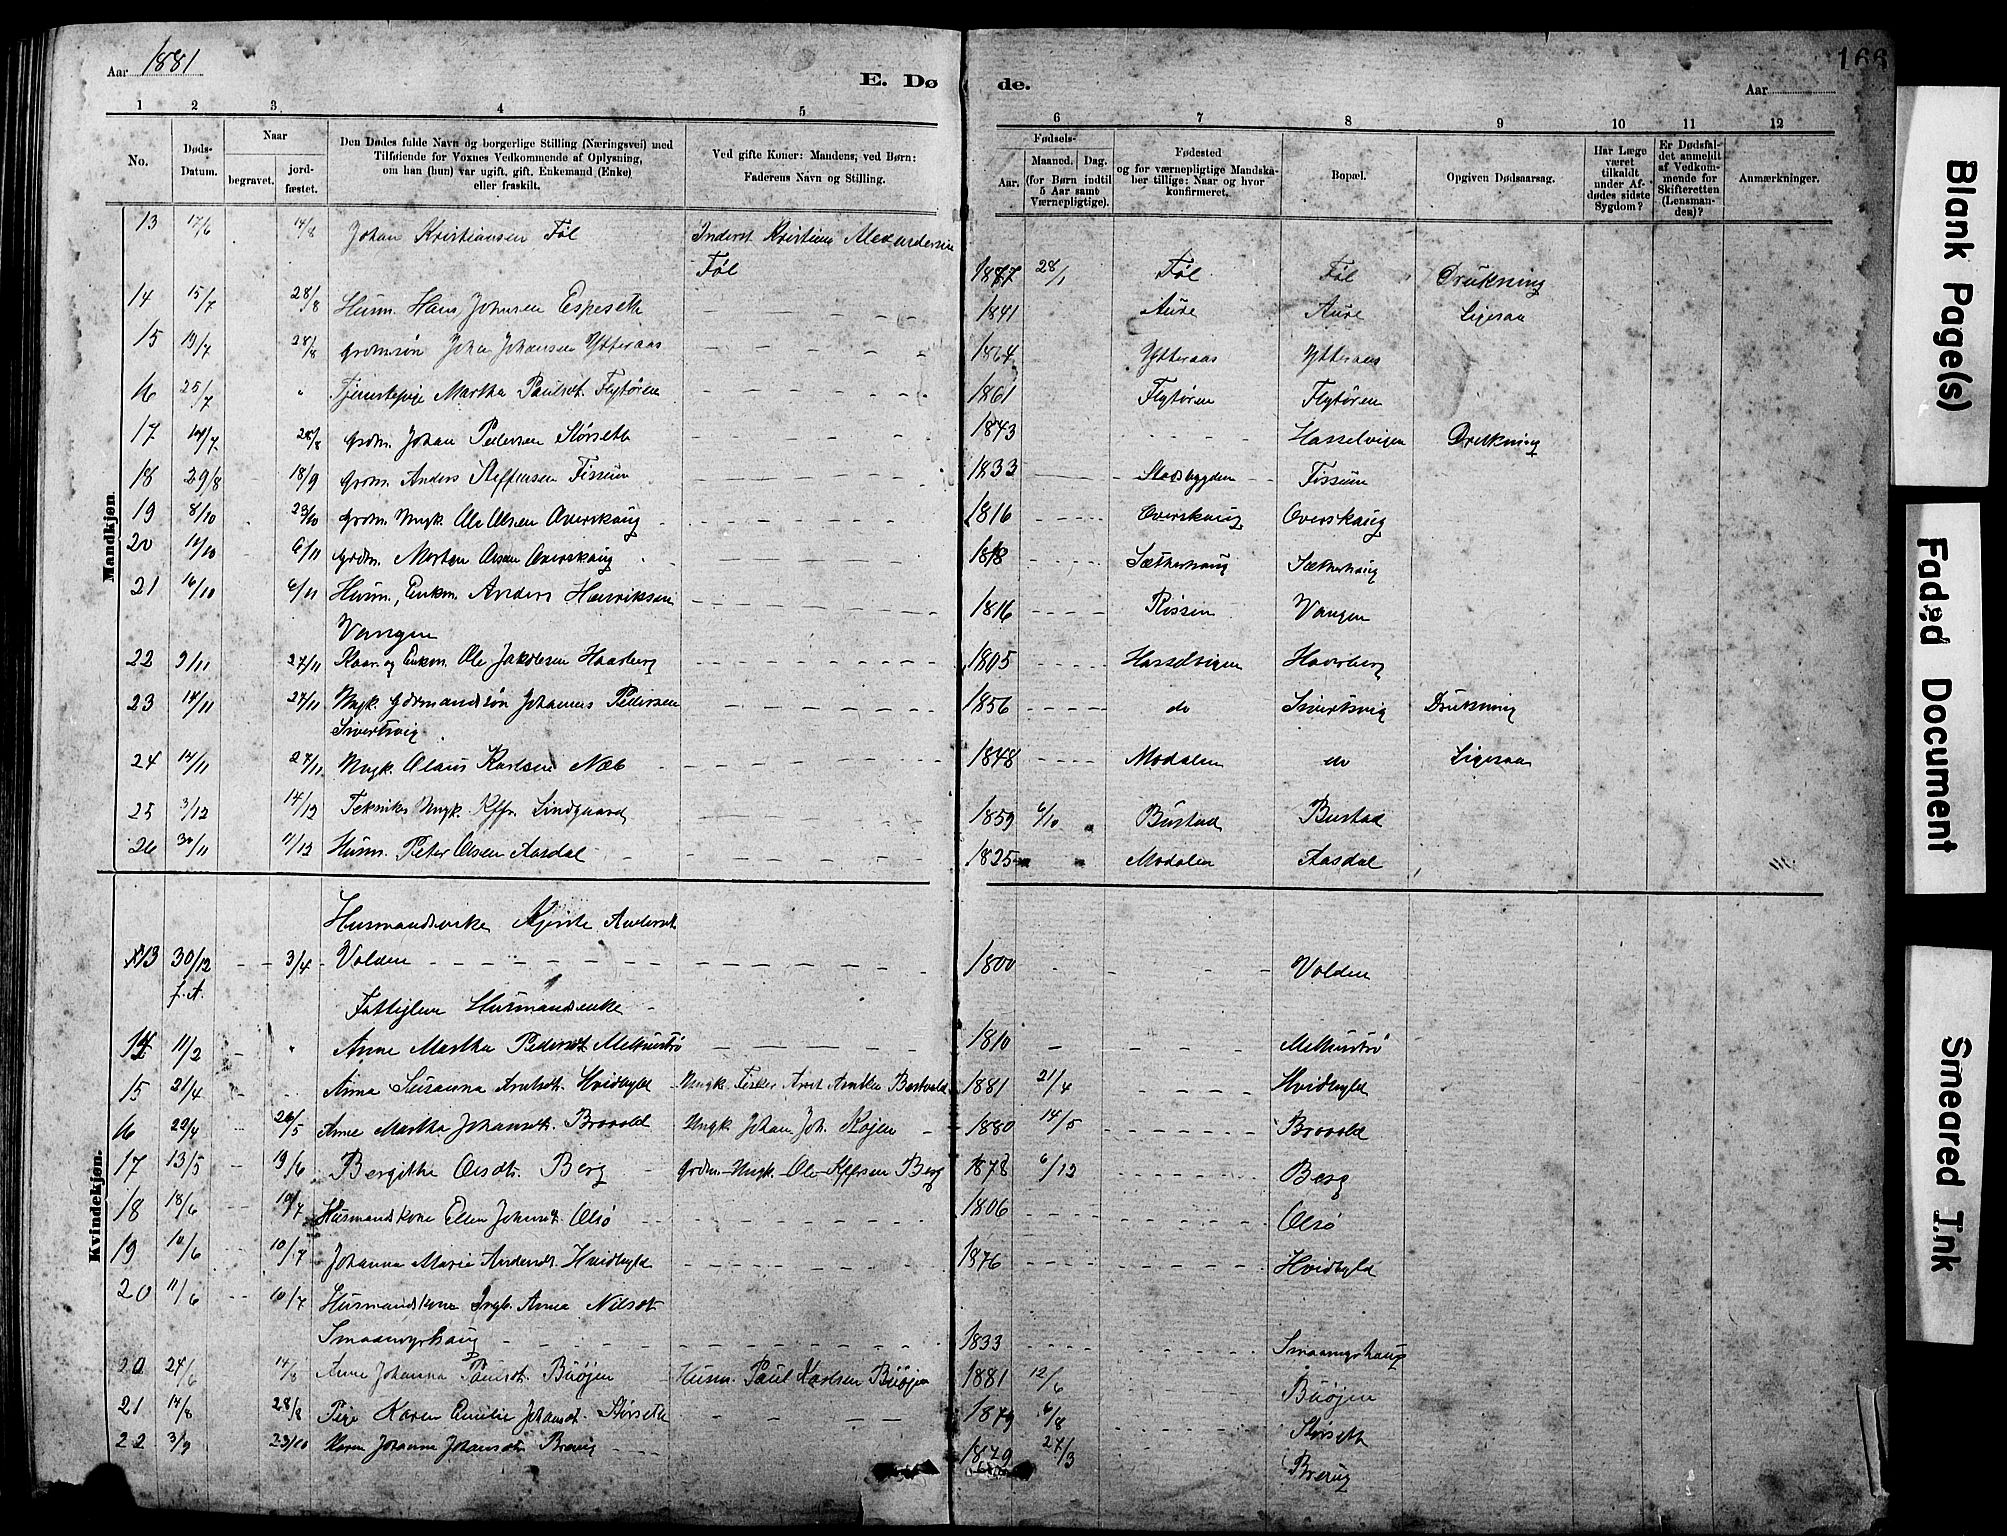 Aar 1881
E. Dø
de.
Aar
166
1 2 3 4 5 6 7 8 9 10 11 12
No.
Døds-Datum.
Naar
begravet.
jordfæstet.
Den Dødes fulde Navn og borgerlige Stilling (Næringsvei) med
Tilføiende for Voxnes Vedkommende af Oplysning,
om han (hun) var ugift, gift, Enkemand (Enke)
eller fraskilt.
Ved gifte Koner: Mandens, ved Børn:
Faderens Navn og Stilling.
Fødsels-
Aar.
Maaned. Dag.
(for Børn indtil
5 Aar samt
Værnepligtige).
Fødested
og for værnepligtige Mandskaber tillige: Naar og hvor
konfirmeret.
Bopæl.
Opgiven Dødsaarsag.
Har Læge
været
tilkaldt
under Afdødes sidste
Sygdom?
Er Dødsfaldet anmeldt
af Vedkommende for
Skifteretten
(Lensmanden)?
Anmærkninger.
Mandkjøn.
13 17/6 14/8 Johan Kristiansen Føl Inderst Kristian Alexandersen
Føl 1877 28/1 Føl Føl Drukning
14 15/7 28/8 Husm. Hans Johnsen Espeseth 1841 Aure Aure Ligesaa
15 19/7 28/8 Grdmsøn Johan Johansen Ytteraas 1864 Ytteraas Ytteraas
16 25/7 " Tjenestepige Martha Paulsdt. Flytøren 1861 Flytøren Flytøren
17 14/7 28/8 Grdm. Johan Pedersen Størseth 1843 Hasselvigen Drukning
18 29/8 18/9 Grdm. Anders Steffensen Fissum 1833 Stadsbygden Fissum
19 8/10 23/10 Grdm. Ungk. Ole Olsen Overskaug 1816 Overskaug Overskaug
20 12/10 6/11 Grdm. Morten Olsen Overskaug 1818 Sætherhaug Sætherhaug
21 16/10 6/11 Husm., Enkm. Anders Henriksen
Vangen 1816 Rissen Vangen
22 9/11 27/11 Kaar. og Enkm. Ole Jakobsen Haarberg 1805 Hasselvigen Haarberg
23 14/11 27/11 Ungk. Gdrmandssøn Johannes Pedersen
Sivertsvig 1856 do Sivertsvig Drukning
24 14/11 27/11 Ungk. Olaus Karlsen Næb 1848 Modalen do Ligesaa
25 3/12 14/12 Ungk. Lindgaard 1859 6/10 Bustad Bustad
26 30/11 11/12 Husm. Peter Olsen Aasdal 1825 Modalen Aasdal
Kvindekjøn.
Husmandsenke Kjerste Andersdt.
13 30/12 3/4 Volden 1800 Volden
f. A.
Fattiglem Husmandsenke
14 11/2 " Anne Martha Pedersdt. Melkustrø 1810 Melkustrø
15 21/4 Anna Susanna Arntsdt. Hvidbyld Ungk. Fisker Arnt 1881 21/4 Hvidbyld
16 22/4 26/5 Anne Martha Johansdt. Brovold Ungk Johan Joh. Røjen 1880 14/5 Brovold
17 13/5 19/6 Bergithe Olsdt. Berg Grdm. Ungk. Ole Berg 1878 6/12 Berg
18 18/6 10/7 Husmandskone Ellen Johnsdt. Olsø 1806 Olsø
19 10/6 10/7 Johanna Marie Andersdt. Hvidbyld 1876 Hvidbyld
20 11/6 10/7 Husmandskone Ingb. Anna Nilsdt.
Smaamyrhaug 1833 Smaamyrhaug
20 24/6 14/8 Anne Johanna Paulsdt. Buøjen Husm. Paul Karlsen Buøjen 1881 12/6 Buøjen
21 14/8 28/8 Pige Karen Emilie Johansdt. Størseth 1879 6/8 Størseth
22 3/9 23/10 Karen Johanne Johansdt. Brerug 1879 27/3 Brerug
Blank Page(s)
Faded Document
Smeared Ink